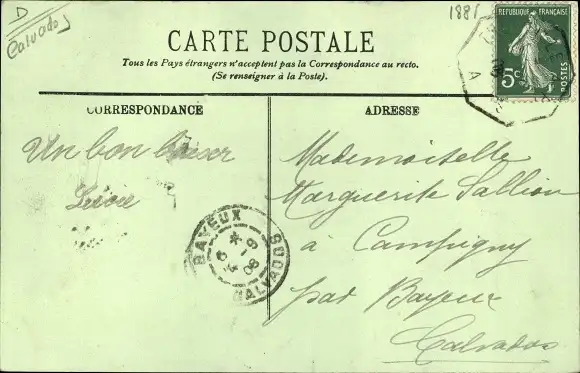 D
Calvados
1881
RÉPUBLIQUE FRANÇAISE
5c
POSTES
CARTE POSTALE
Tous les Pays étrangers n'acceptent pas la Correspondance au recto.
(Se renseigner à la Poste).
CORRESPONDANCE
ADRESSE
Un bon baiser
Mademoiselle
Marguerite Sallion
à Campigny
par Bayeux
Calvados
BAYEUX
CALVADOS